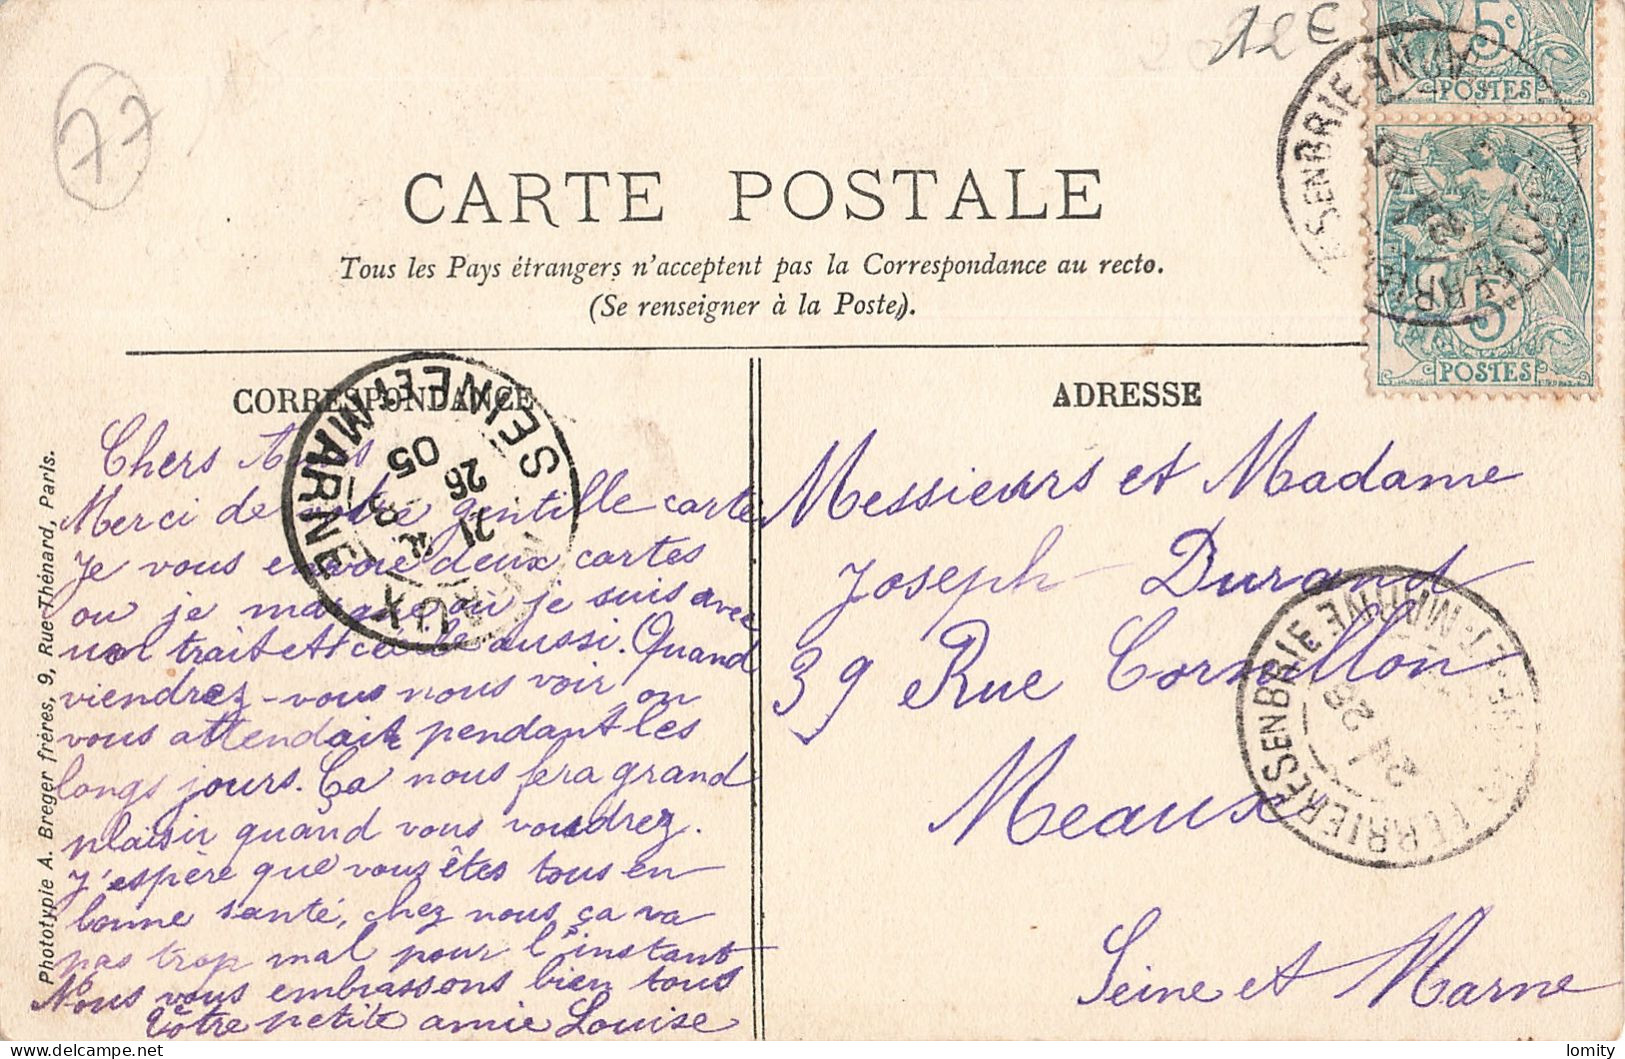 77
12€
5c
POSTES
5
POSTES
CARTE POSTALE
Tous les Pays étrangers n'acceptent pas la Correspondance au recto.
(Se renseigner à la Poste).
CORRESPONDANCE
Chers Amis
Merci de votre gentille carte
Je vous envoie deux cartes
ou je marque où je suis avec
un trait et celle aussi. Quand
viendrez-vous nous voir on
vous attendait pendant les
longs jours. Ça nous fera grand
plaisir quand vous voudrez.
J'espère que vous êtes tous en
bonne santé, chez nous ça va
pas trop mal pour l'instant
Nous vous embrassons bien tous
Vôtre petite amie Louise
ADRESSE
Messieurs et Madame
Joseph Durand
39 Rue Cornillon
Meaux
Seine et Marne
SEINE ET MARNE
21 26
05
FERRIERES EN BRIE
Phototypie A. Breger frères, 9, Rue Thénard, Paris.
delcampe.net
lomity